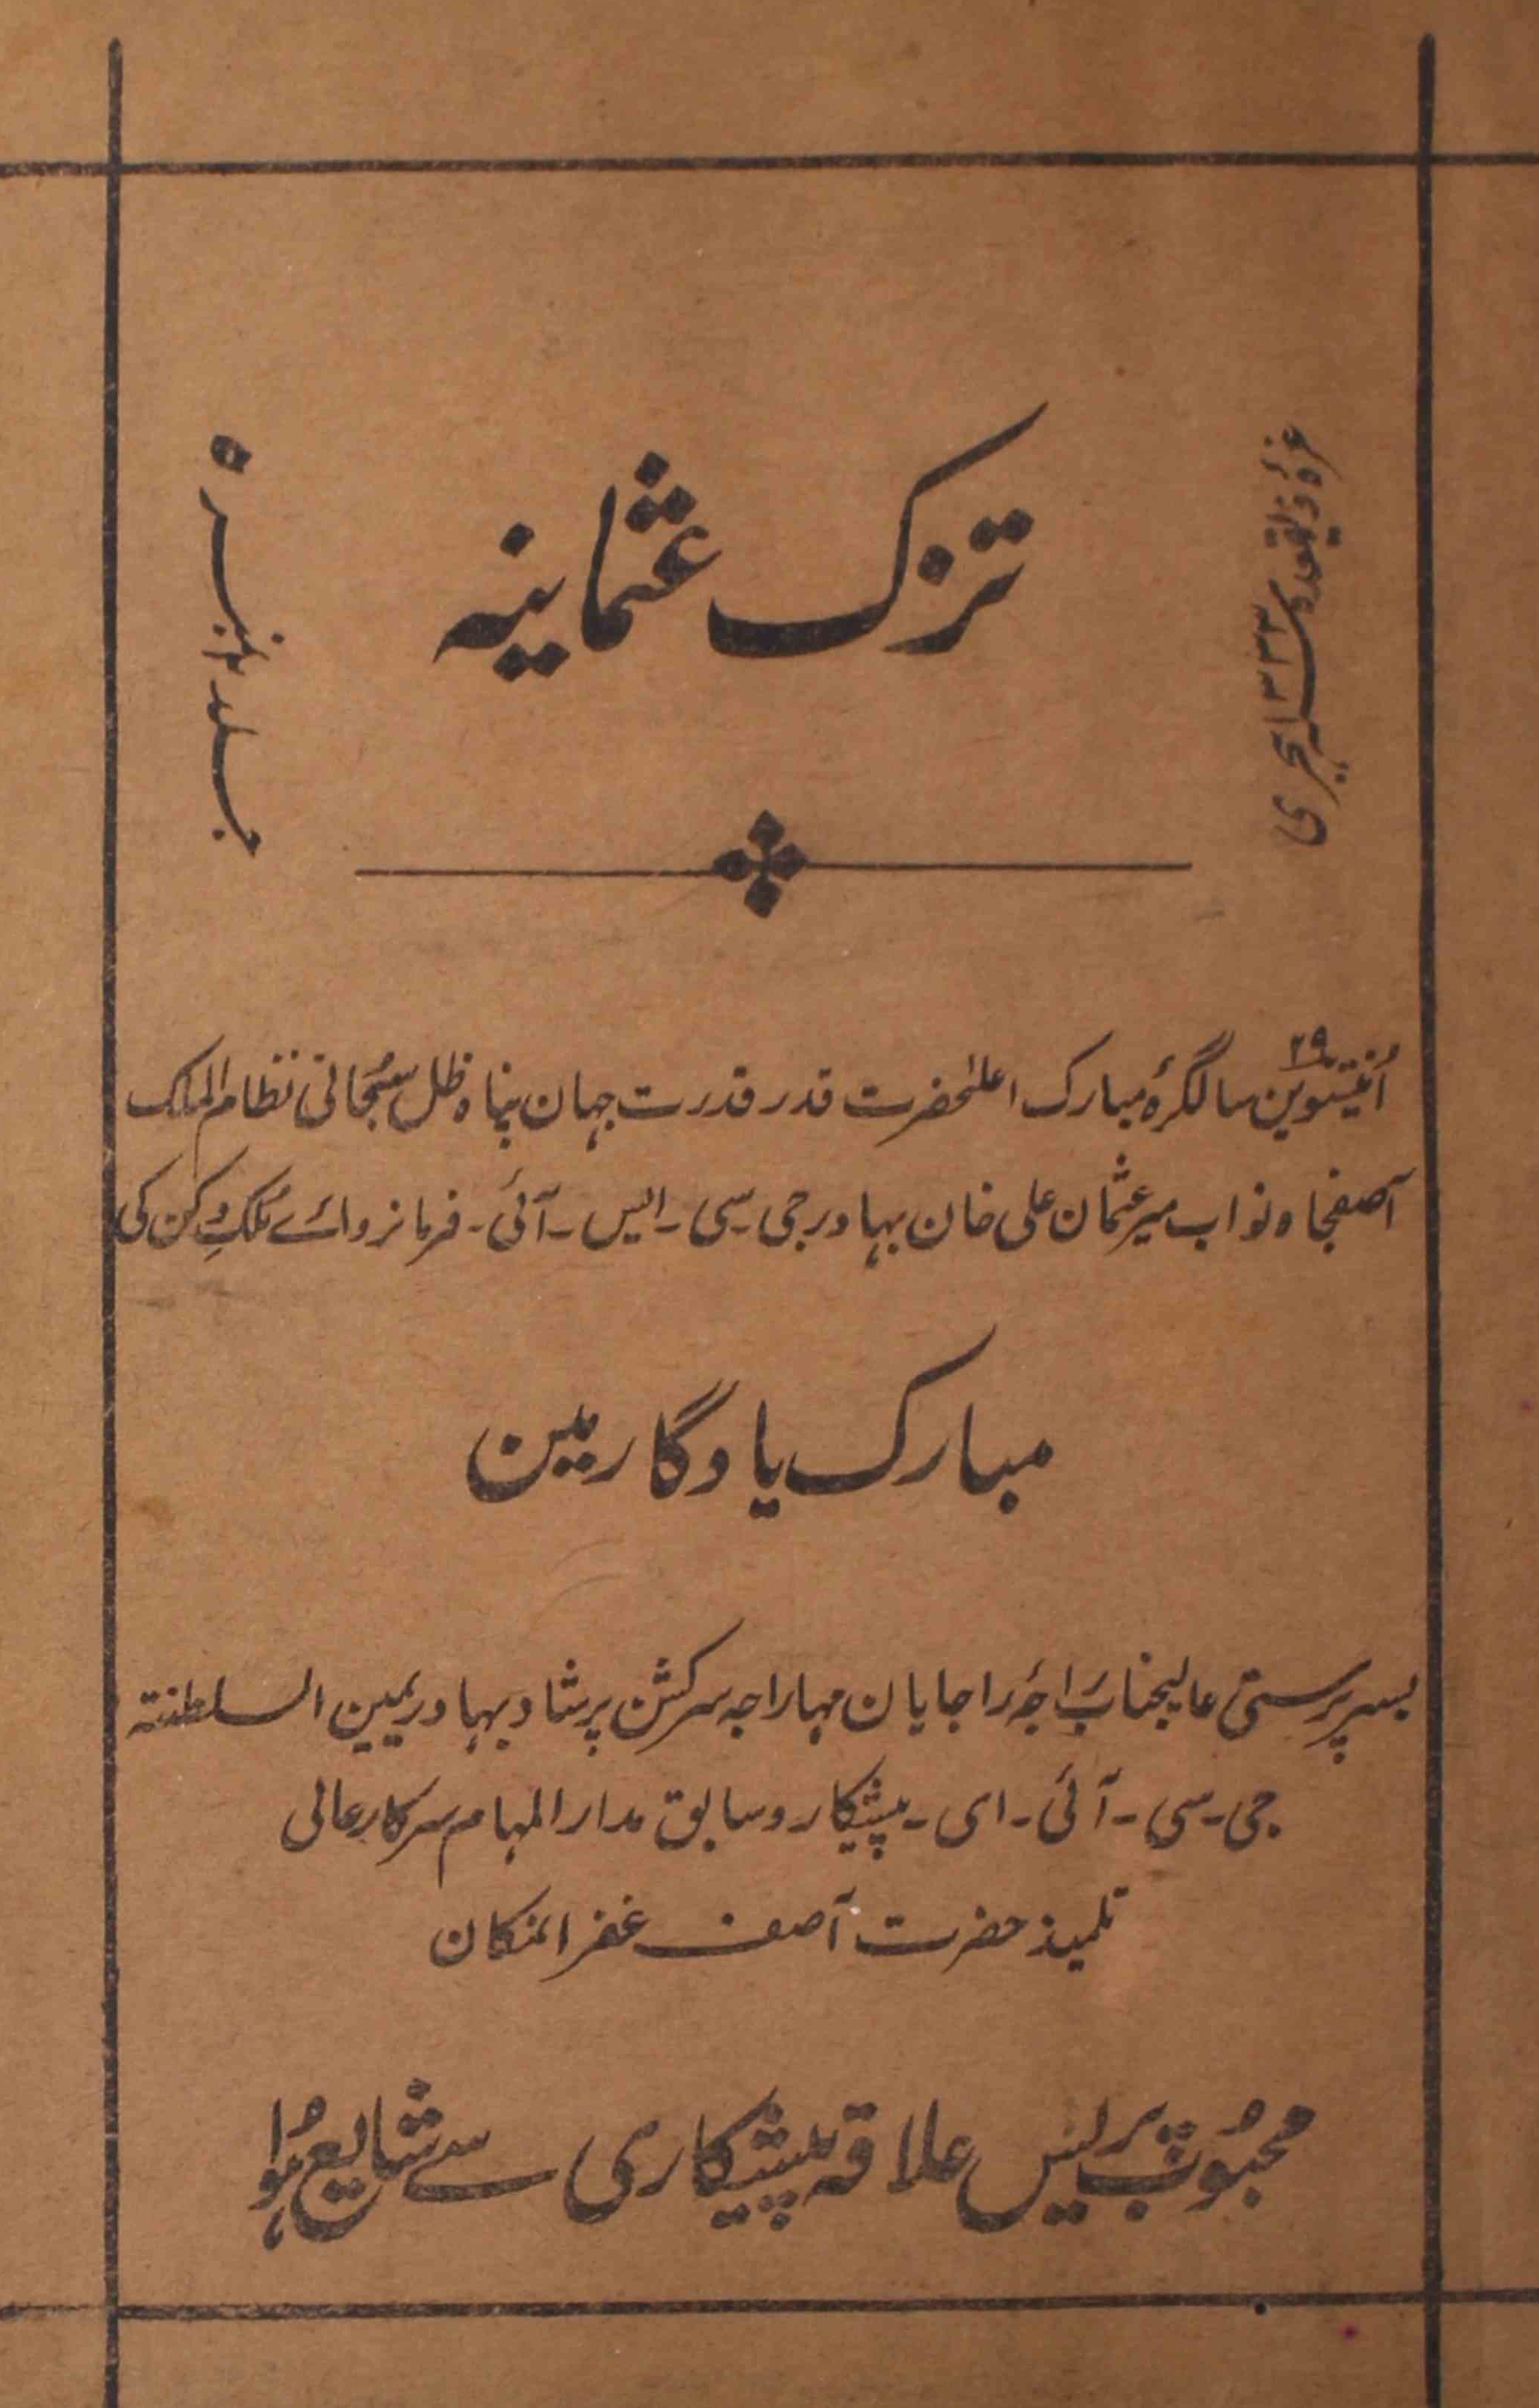 غرۂ ذیقعدہ ۱۳۳۳ ہجری
تزک عثمانیہ
جلد ۲ نمبر ۵
۲۹
اُنتیسوین سالگرۂ مبارک اعلیٰحضرت قدر قدرت جہان پناہ ظل سبحانی نظام الملک
آصفجاہ نواب میر عثمان علی خان بہادر جی ۔ سی ۔ ایس ۔ آئی ۔ فرمانروائے مُلکِ دکن کی
مبارک یادگار مین
بسرپرستی عالیجناب راجۂ راجایان مہاراجہ سر کشن پرشاد بہادر یمین السلطنتہ
جی ۔ سی ۔ آئی ۔ ای ۔ پیشکار و سابق مدار المہام سرکار عالی
تلمیذ حضرت آصف غفرانمکان
محبُوب پریس علاقہ پیشکاری سے شایع ہُوا